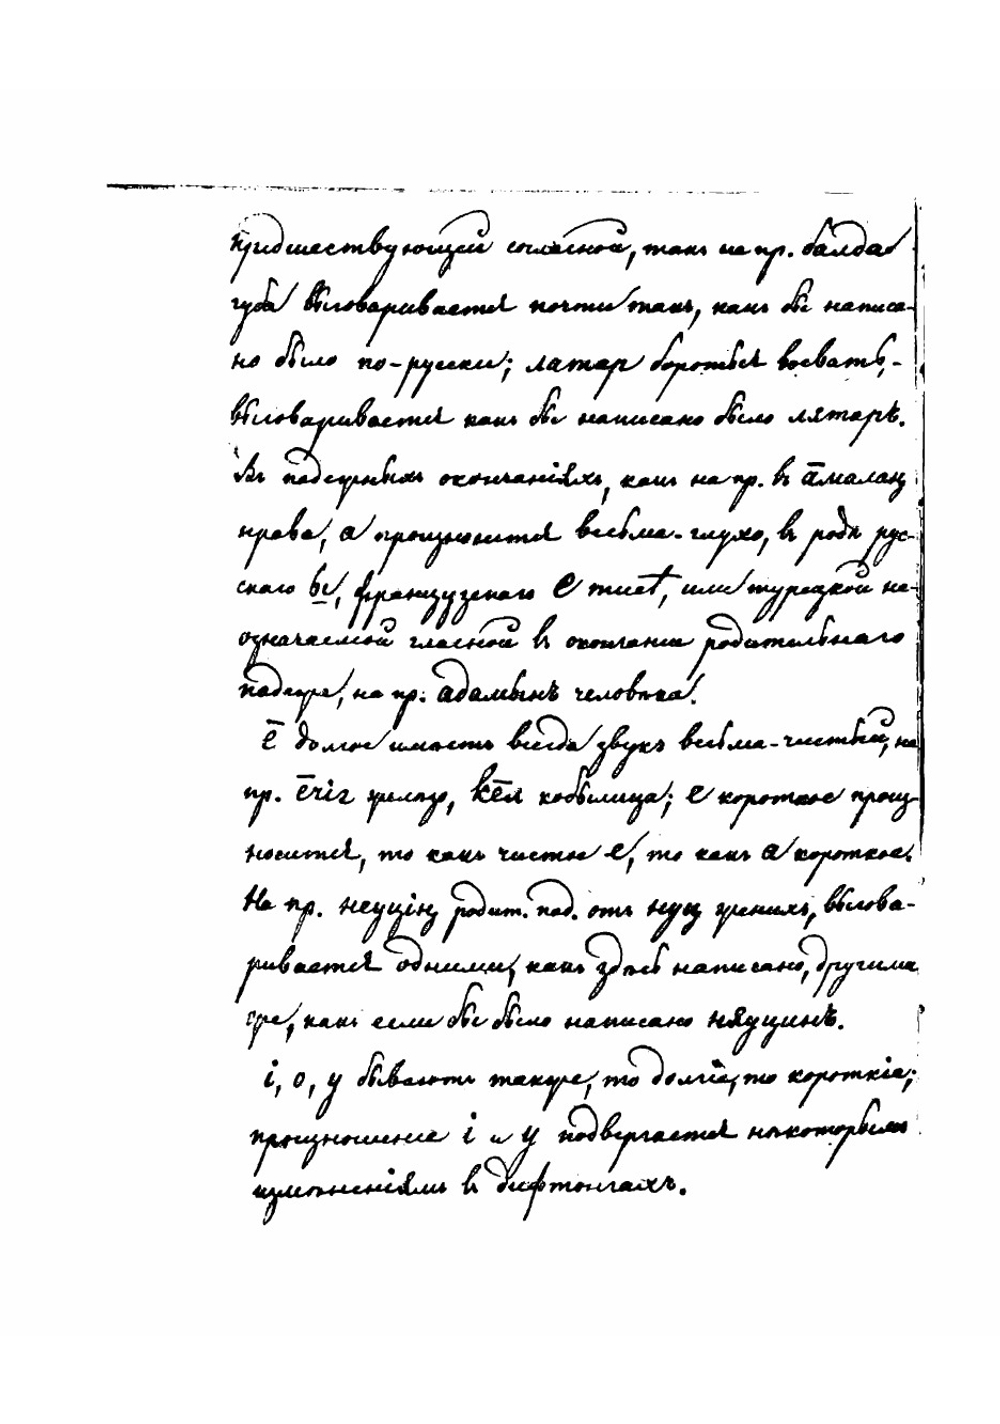 предшествующей согласной, такъ на пр. балда
губа выговаривается почти такъ, какъ бы написа-
но было по-русски; латар бороться воевать,-
выговаривается какъ бы написано было лятаръ.
Въ падежныхъ окончаніяхъ, какъ на пр. въ āмалаң
нрава, а произносится весьма-глухо, въ родѣ рус-
скаго ы, французскаго e muet, или турецкой не-
означаемой гласной въ окончаніи родительнаго
падежа, на пр. адамынъ человѣка.
ē долгое имѣетъ всегда звукъ весьма-чистый, на
пр. ēчіг желѣзо, кēл кобылица; е короткое произ-
носится, то какъ чистое е, то какъ а короткое.
На пр. неуцің родит. пад. отъ нуц женихъ, выгова-
ривается одними, какъ здѣсь написано, другими
же, какъ если бы было написано няуцинъ.
і, о, у бываютъ также, то долгія, то короткія;
произношеніе і и у подвергается нѣкоторымъ
измѣненіямъ въ дифтонгахъ.